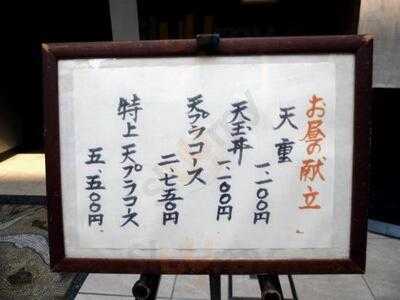 お昼の献立
天重
一、二〇〇円
天玉丼
一、二〇〇円
天プラコース
二、七五〇円
特上 天プラコース
五、五〇〇円